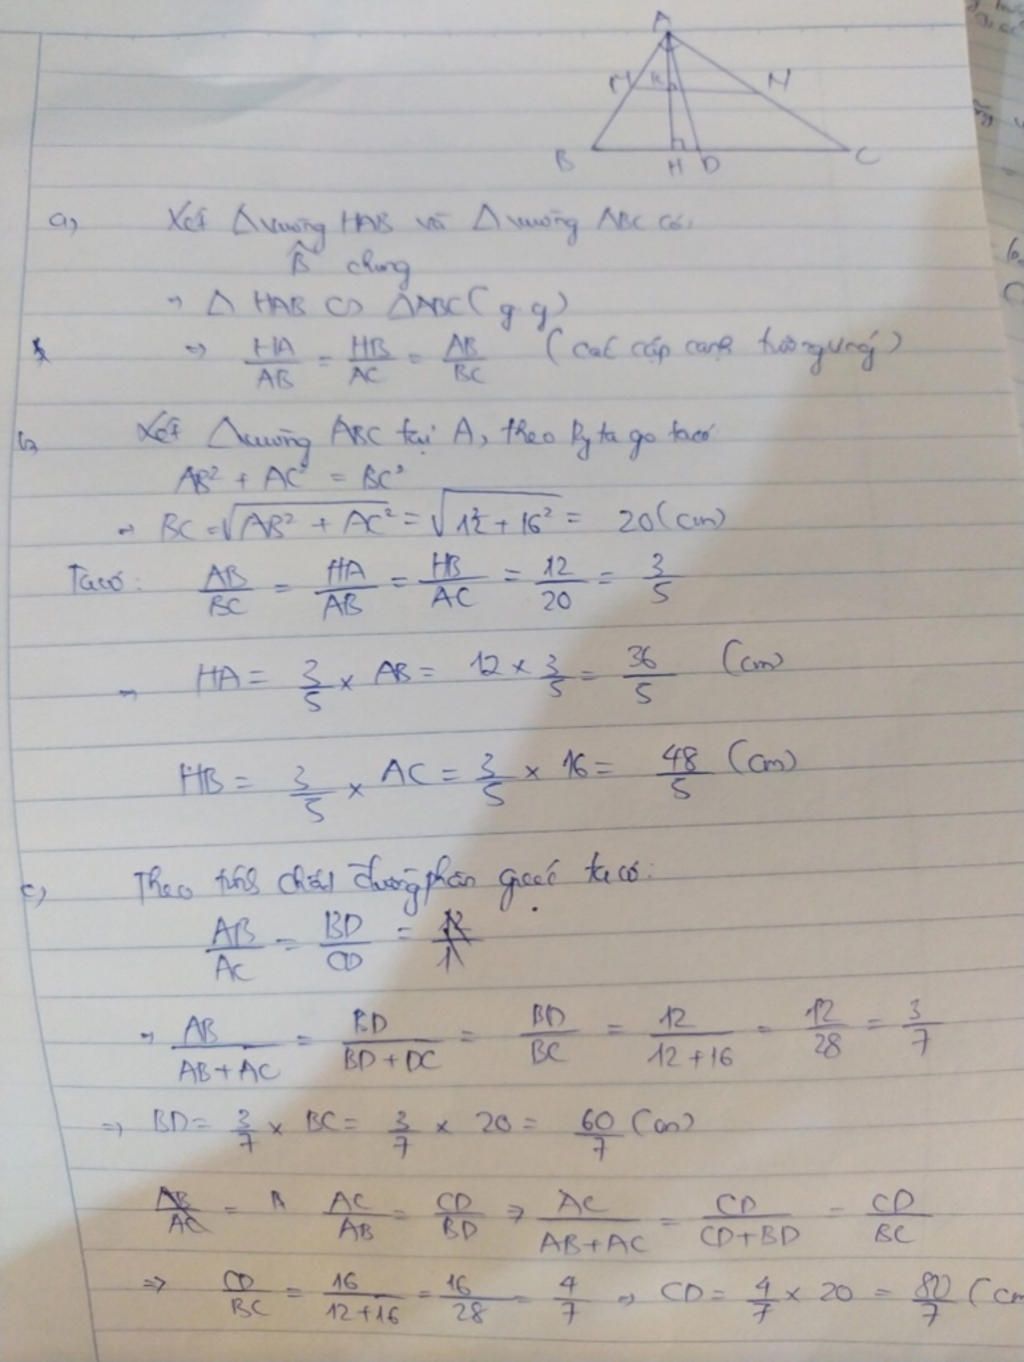 A
M K N
B H D C
a) Xét Δ vuông HAB và Δ vuông ABC có:
B̂ chung
⇒ Δ HAB ∽ ΔABC (g.g)
⇒ HA/AB = HB/AC = AB/BC (các cặp cạnh tương ứng)
b, Xét Δ vuông ABC tại A, theo Pytago ta có
AB² + AC² = BC²
⇒ BC = √(AB² + AC²) = √(12² + 16²) = 20 (cm)
Ta có: AB/BC = HA/AB = HB/AC = 12/20 = 3/5
⇒ HA = 3/5 × AB = 12 × 3/5 = 36/5 (cm)
HB = 3/5 × AC = 3/5 × 16 = 48/5 (cm)
c) Theo tính chất đường phân giác ta có:
AB/AC = BD/CD =
⇒ AB/(AB+AC) = BD/(BD+DC) = BD/BC = 12/(12+16) = 12/28 = 3/7
⇒ BD = 3/7 × BC = 3/7 × 20 = 60/7 (cm)
AB/AC = A AC/AB = CD/BD ⇒ AC/(AB+AC) = CD/(CD+BD) = CD/BC
⇒ CD/BC = 16/(12+16) = 16/28 = 4/7 ⇒ CD = 4/7 × 20 = 80/7 (cm